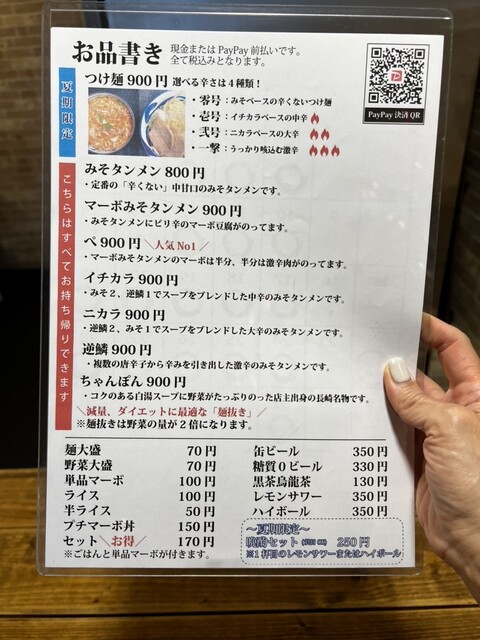 お品書き
現金または PayPay 前払いです。
全て税込みとなります。
PayPay 決済 QR
夏期限定
つけ麺 900円 選べる辛さは4種類！
・零号：みそベースの辛くないつけ麺
・壱号：イチカラベースの中辛
・弐号：ニカラベースの大辛
・一撃：うっかり咳込む激辛
こちらはすべてお持ち帰りできます
みそタンメン 800円
・定番の「辛くない」中甘口のみそタンメンです。
マーボみそタンメン 900円
・みそタンメンにピリ辛のマーボ豆腐がのってます。
ペ 900円 ＼人気 No1／
・マーボみそタンメンのマーボは半分、半分は激辛肉がのってます。
イチカラ 900円
・みそ2、逆鱗1でスープをブレンドした中辛のみそタンメンです。
ニカラ 900円
・逆鱗2、みそ1でスープをブレンドした大辛のみそタンメンです。
逆鱗 900円
・複数の唐辛子から辛みを引き出した激辛のみそタンメンです。
ちゃんぽん 900円
・コクのある白湯スープに野菜がたっぷりのった店主出身の長崎名物です。
＼減量、ダイエットに最適な「麺抜き」／
※麺抜きは野菜の量が2倍になります。
麺大盛 70円
野菜大盛 70円
単品マーボ 100円
ライス 100円
半ライス 50円
プチマーボ丼 150円
セット＼お得／ 170円
※ごはんと単品マーボが付きます。
缶ビール 350円
糖質0ビール 330円
黒茶烏龍茶 130円
レモンサワー 350円
ハイボール 350円
～夏期限定～
セット 250円
※1杯目のレモンサワーまたはハイボール